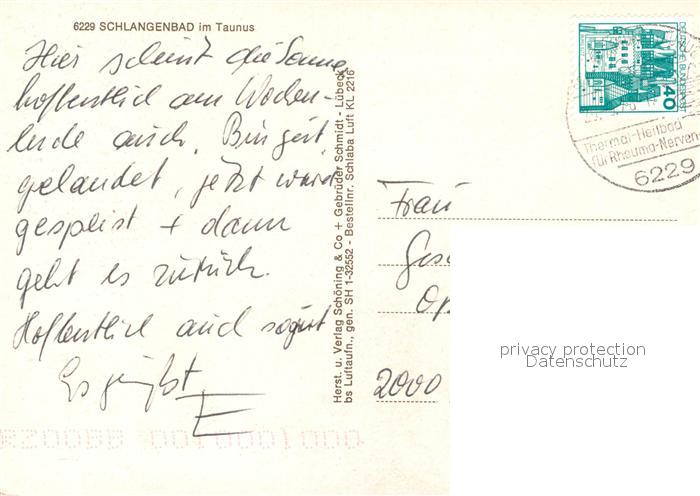 6229 SCHLANGENBAD im Taunus
Hier scheint die Sonne
hoffentlich am Wochen-
ende auch. Bin gut
gelandet, jetzt wird
gespeist + dann
geht es zurück.
Hoffentlich auch so gut
Es grüßt
E
Herst. u. Verlag Schöning & Co + Gebrüder Schmidt - Lübeck
bs Luftaufn., gen. SH 1-32552 - Bestellnr. Schlaba Luft KL 2216
DEUTSCHE BUNDESPOST
40
Thermal-Heilbad
für Rheuma-Nerven-
6229
Frau
2000
privacy protection
Datenschutz